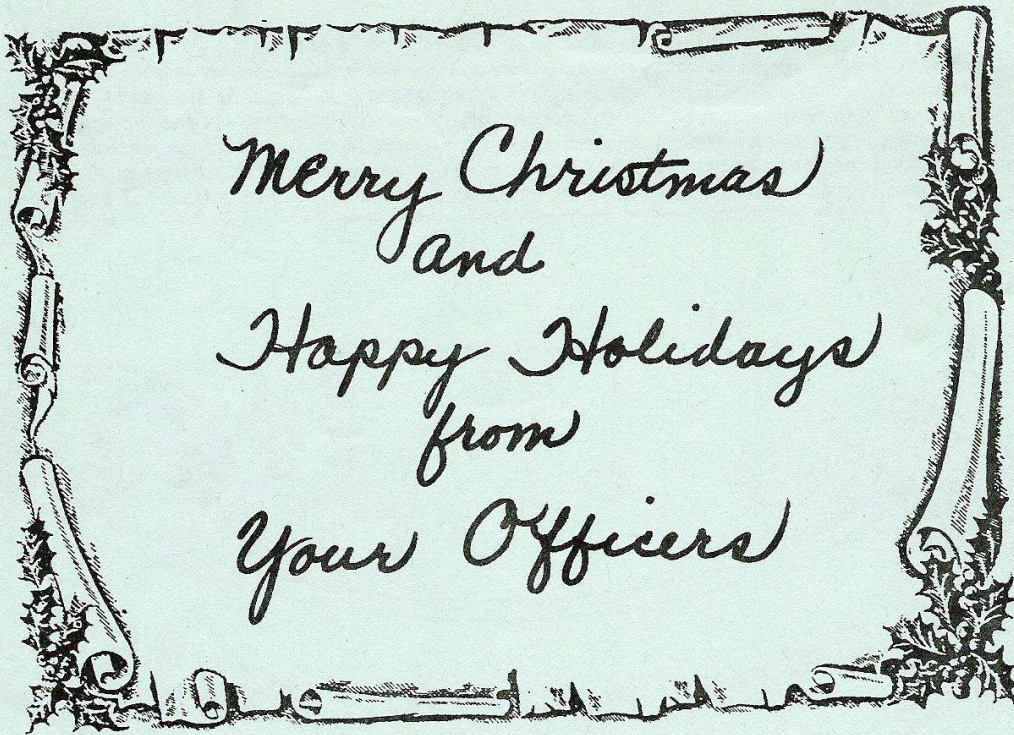 Merry Christmas
and
Happy Holidays
from
Your Officers